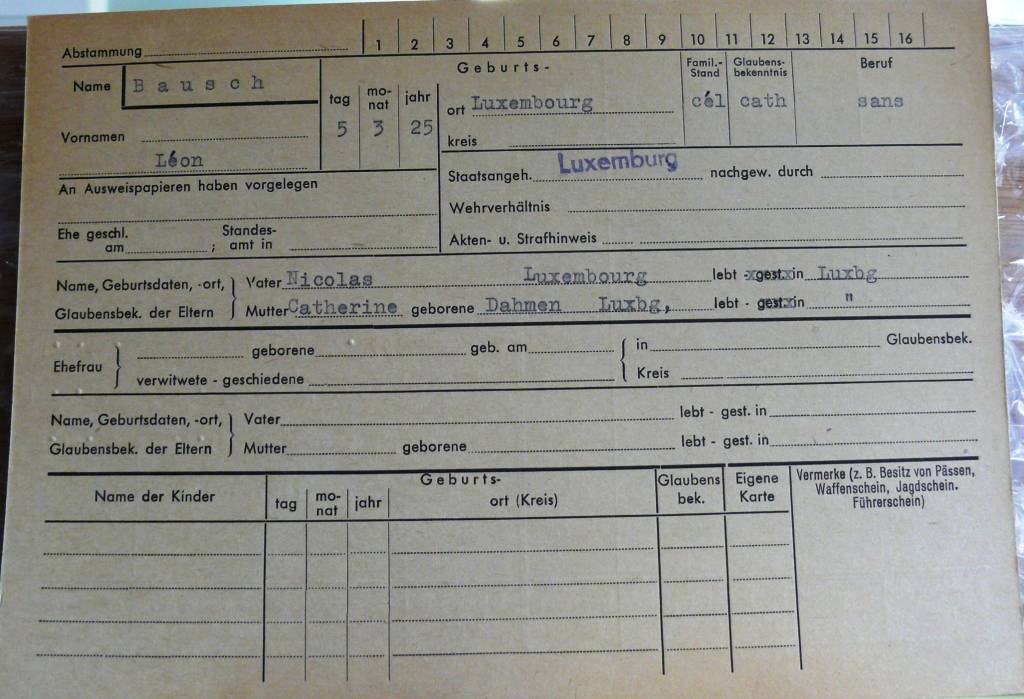 Abstammung 1 2 3 4 5 6 7 8 9 10 11 12 13 14 15 16
Name Bausch
Vornamen
Léon
Geburts-
tag monat jahr
5 3 25
ort Luxembourg
kreis
Famil.-Stand
cél
Glaubens-bekenntnis
cath
Beruf
sans
An Ausweispapieren haben vorgelegen
Ehe geschl. am ; Standes-amt in
Staatsangeh. Luxemburg nachgew. durch
Wehrverhältnis
Akten- u. Strafhinweis
Name, Geburtsdaten, -ort, Glaubensbek. der Eltern
Vater Nicolas Luxembourg lebt - gest. in Luxbg
Mutter Catherine geborene Dahmen Luxbg, lebt - gest. in "
Ehefrau geborene geb. am in Glaubensbek.
verwitwete - geschiedene Kreis
Name, Geburtsdaten, -ort, Glaubensbek. der Eltern
Vater lebt - gest. in
Mutter geborene lebt - gest. in
Name der Kinder
Geburts-
tag mo-nat jahr ort (Kreis)
Glaubens bek.
Eigene Karte
Vermerke (z. B. Besitz von Pässen,
Waffenschein, Jagdschein.
Führerschein)